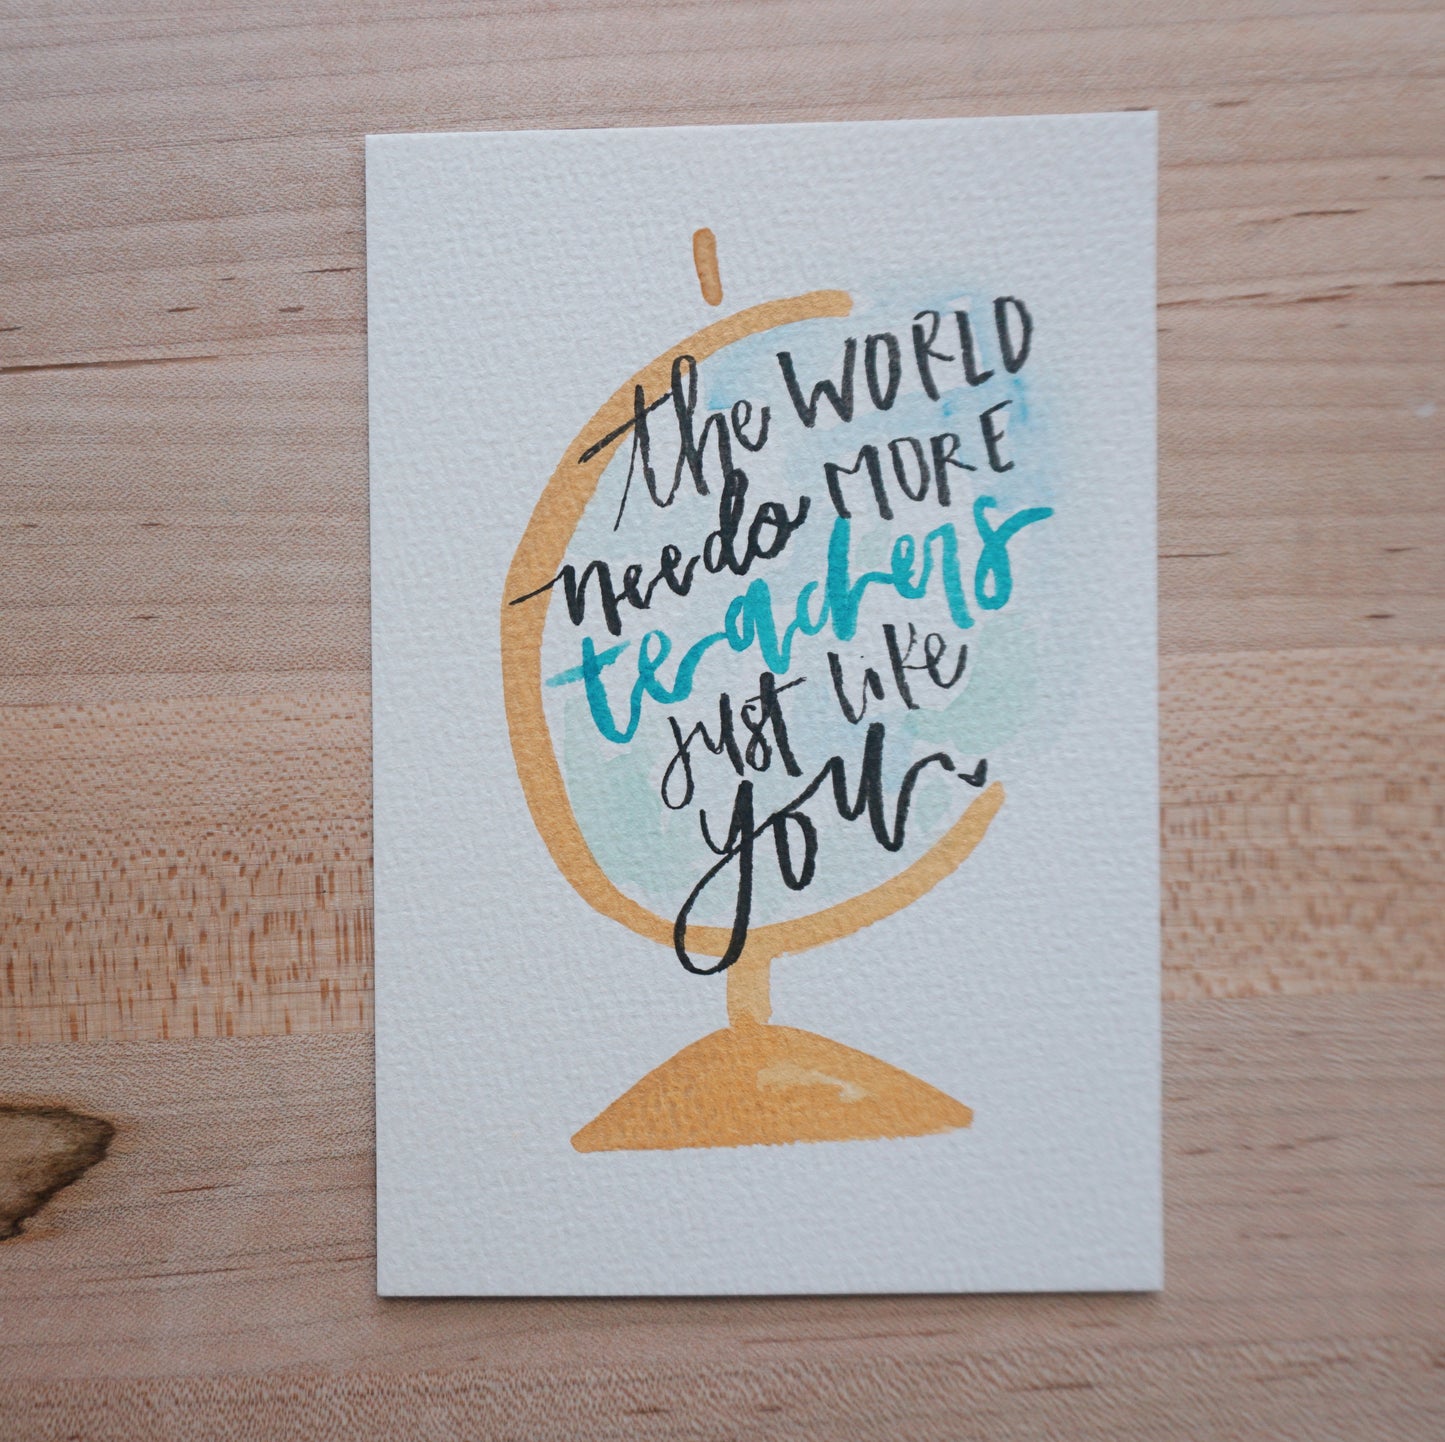 the WORLD
needs MORE
teachers
just like
you